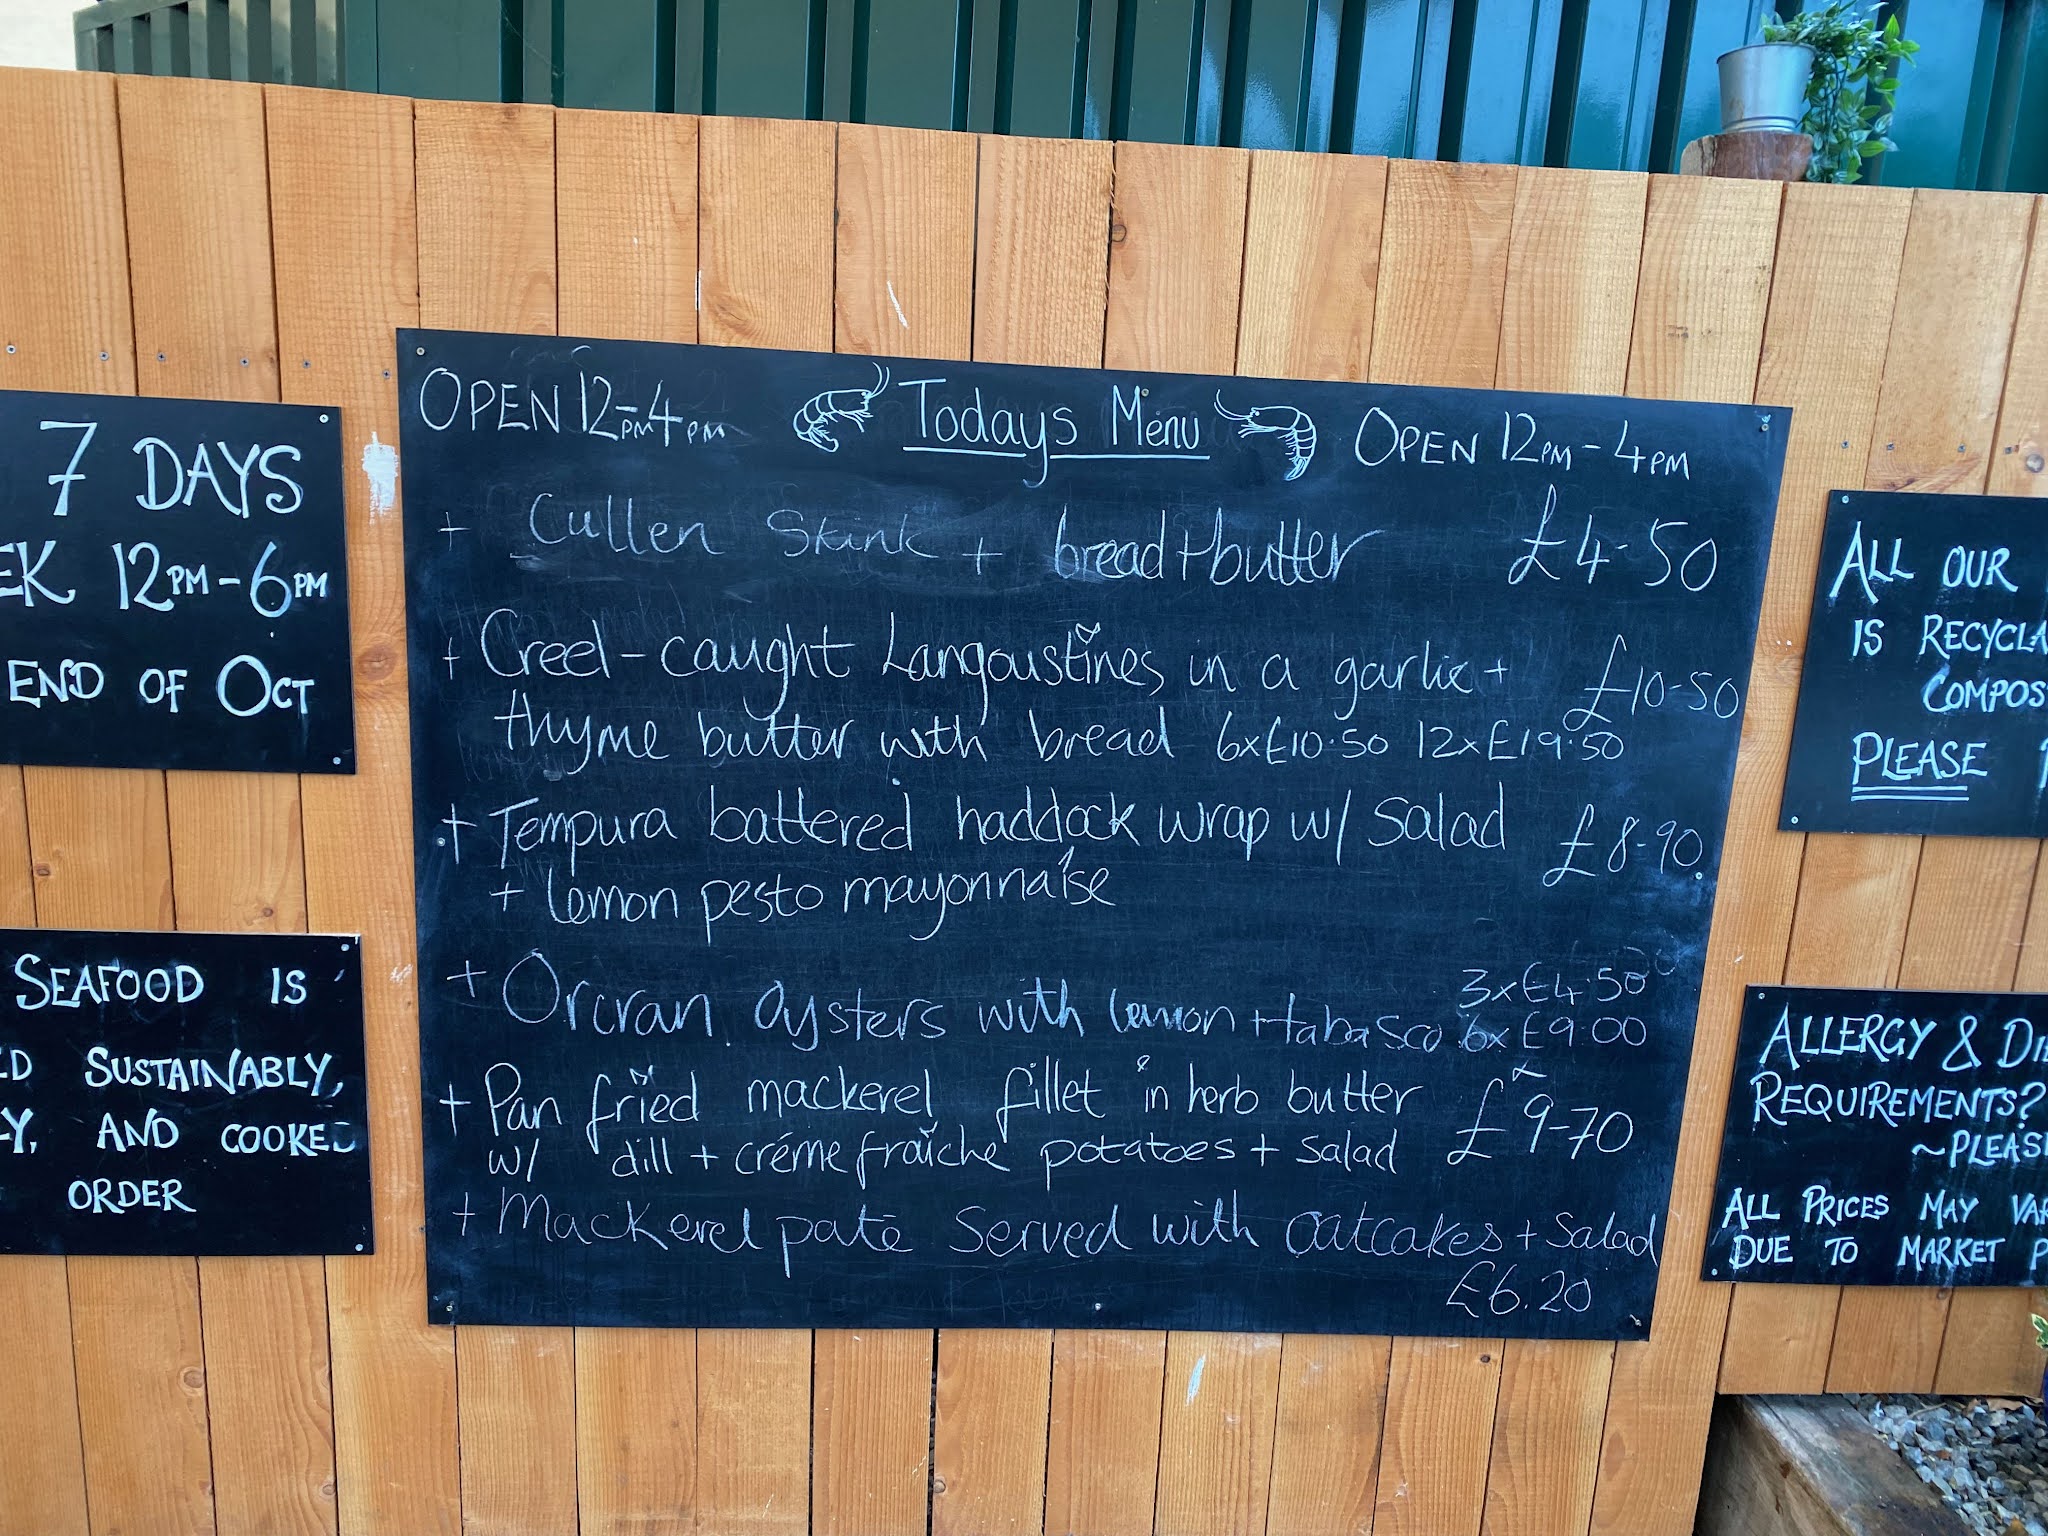 7 DAYS
EK 12PM-6PM
END OF OCT
SEAFOOD IS
ED SUSTAINABLY,
LY, AND COOKED
ORDER
OPEN 12PM-4PM Todays Menu OPEN 12PM-4PM
+ Cullen Skink + bread+butter £4-50
+ Creel-caught Langoustines in a garlic + £10-50
thyme butter with bread 6x£10.50 12x£19.50
+ Tempura battered haddock wrap w/ Salad £8-90
+ lemon pesto mayonnaise
3x£4.50
+ Orcran Oysters with lemon + tabasco 6x£9.00
+ Pan fried mackerel fillet in herb butter £9-70
w/ dill + créme fraîche potatoes + salad
+ Mackerel patē Served with Oatcakes + Salad
£6.20
ALL OUR
IS RECYCLA
COMPOS
PLEASE
ALLERGY & DIE
REQUIREMENTS?
~PLEAS
ALL PRICES MAY VAR
DUE TO MARKET P